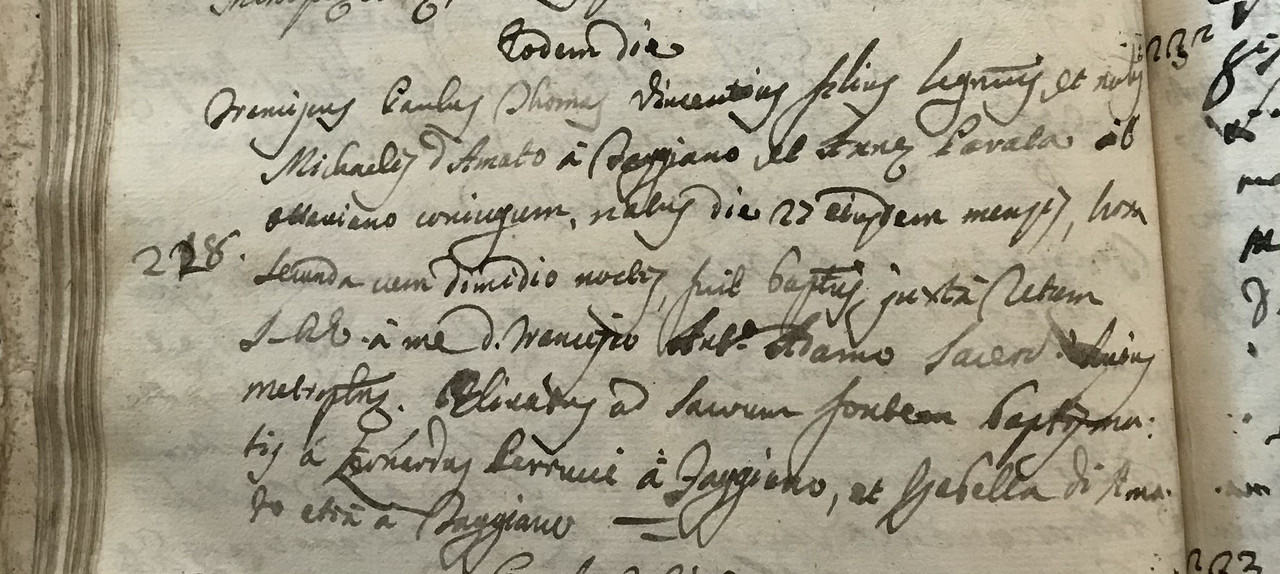 Eodem die
Franciscus Paulus Thomas Vincentius filius legnus et nālis
Michaelis d'Amato à Faggiano et Annę Cavala ab
Octaviano coniugum, natus die 27 eiusdem mensis, hora
228.
secunda cum dimidio noctis, fuit baptus juxtà Retum
à me d. Francisco Antº Adamo Sacerd.
metroplnę. Elevatus ad sacrum fontem baptisma:
tis à Leonardus Perrucci à Faggiano, et Isabella di Ama:
to etiā à Faggiano
232